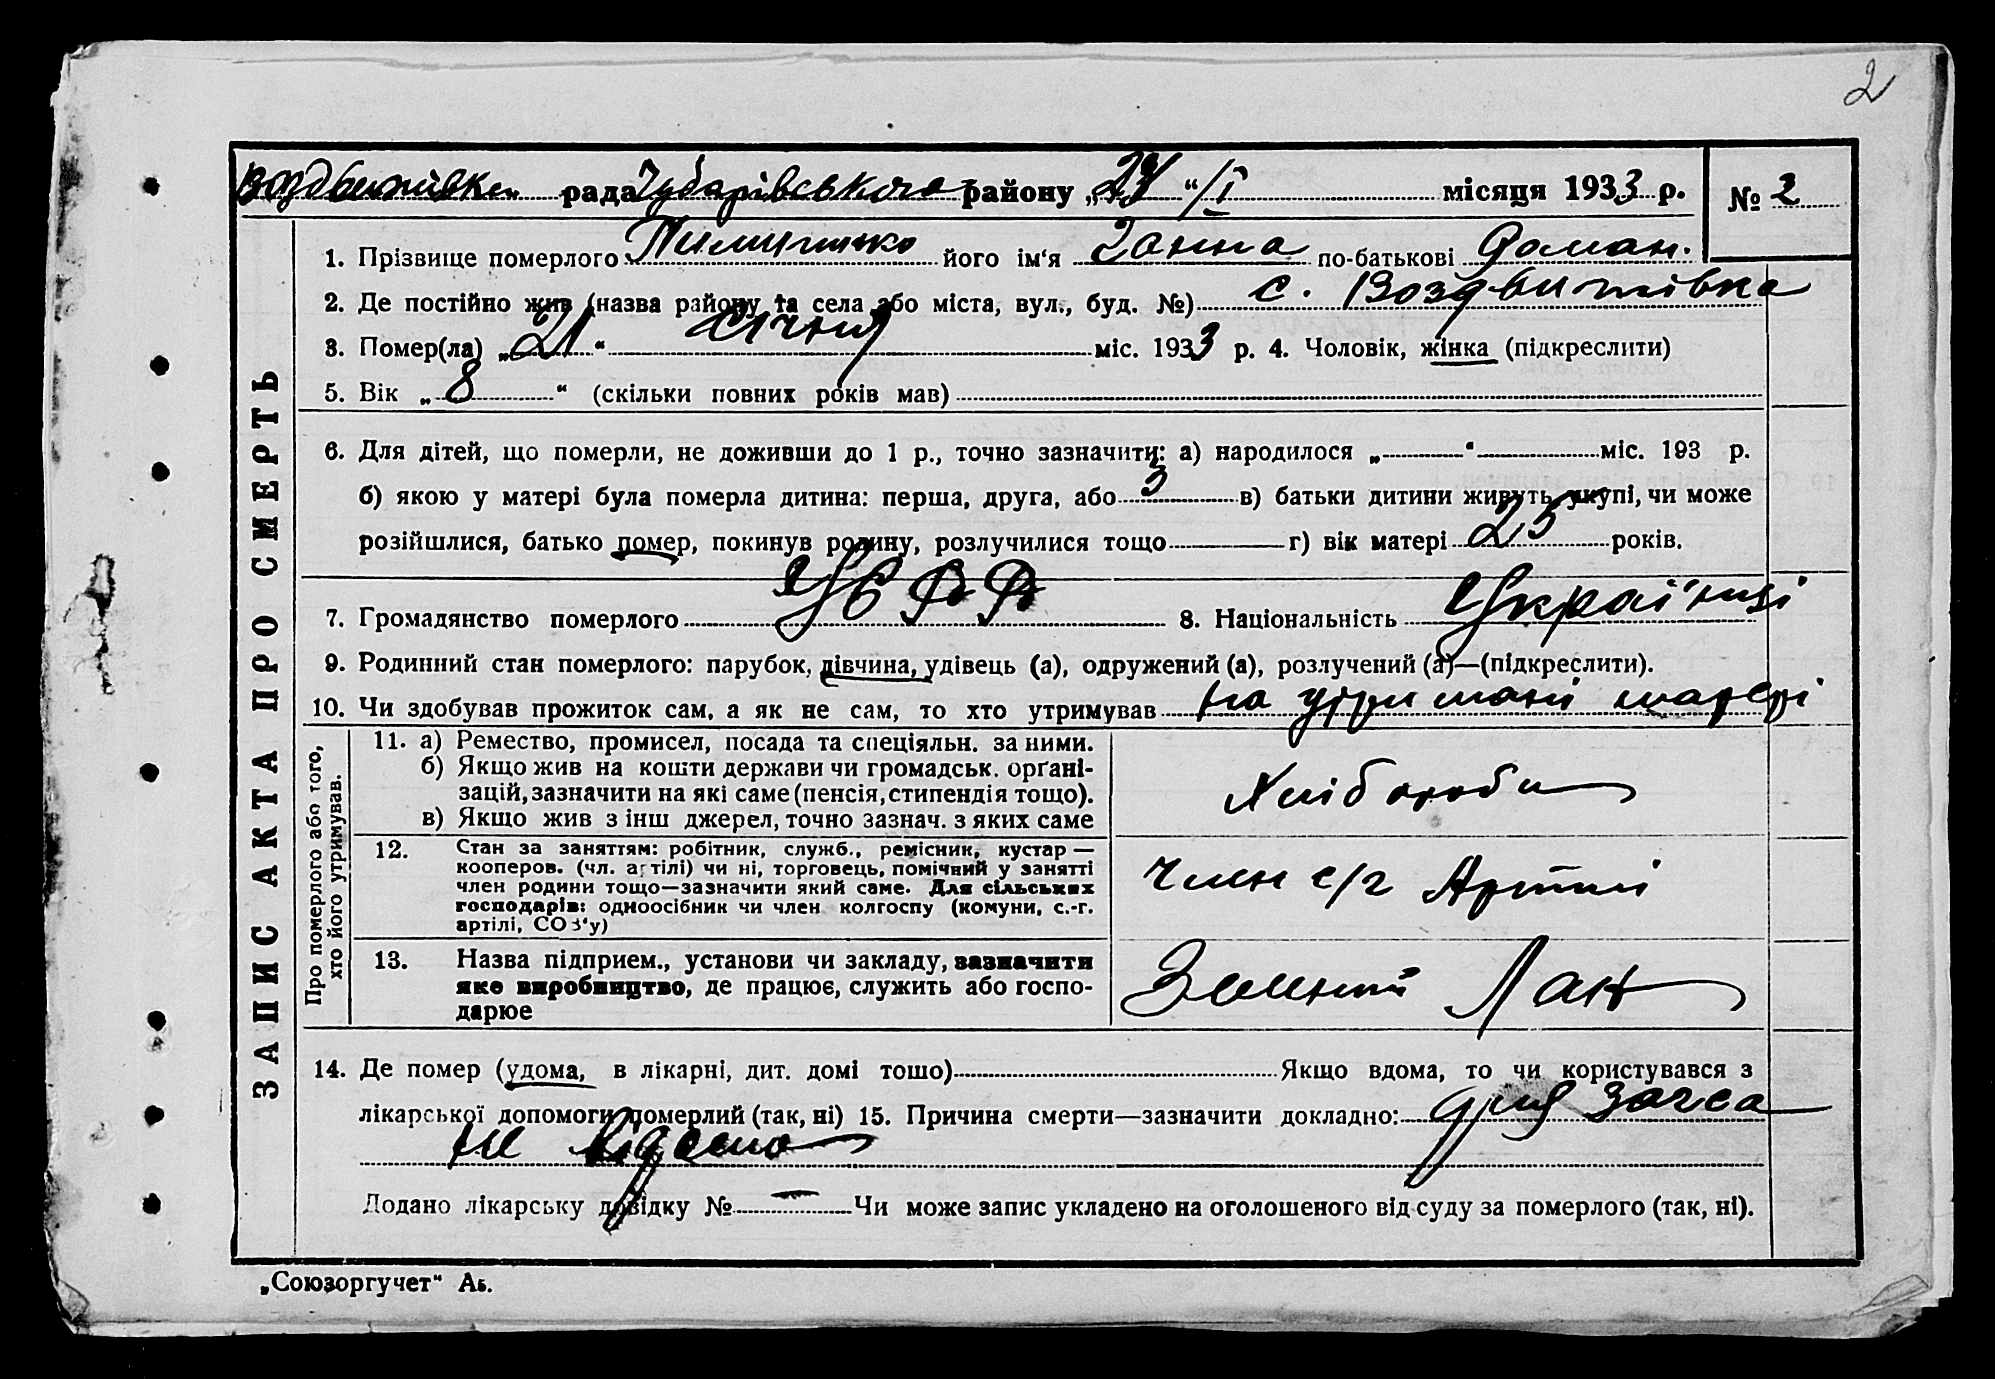 2
рада Чубарівського району „24“ /I місяця 1933 р. № 2
ЗАПИС АКТА ПРО СМЕРТЬ
1. Прізвище померлого його ім‘я Ганна по-батькові Роман.
2. Де постійно жив (назва району та села або міста, вул., буд. №) с. Воздвижівка
3. Помер(ла) „21“ січня міс. 1933 р. 4. Чоловік, жінка (підкреслити)
5. Вік „8“ (скільки повних років мав)
6. Для дітей, що померли, не доживши до 1 р., точно зазначити: а) народилося „ “ міс. 193 р.
б) якою у матері була померла дитина: перша, друга, або 3 в) батьки дитини живуть укупі, чи може
розійшлися, батько помер, покинув родину, розлучилися тощо г) вік матері 25 років.
7. Громадянство померлого УСРР 8. Національність Українці
9. Родинний стан померлого: парубок, дівчина, удівець (а), одружений (а), розлучений (а)—(підкреслити).
10. Чи здобував прожиток сам, а як не сам, то хто утримував на утримані матері
Про померлого або того,
хто його утримував.
11. а) Ремество, промисел, посада та спеціяльн. за ними.
б) Якщо жив на кошти держави чи громадськ. орґані-
зацій, зазначити на які саме (пенсія, стипендія тощо).
в) Якщо жив з інш джерел, точно зазнач. з яких саме
Хлібороби
12. Стан за заняттям: робітник, служб., ремісник, кустар —
кооперов. (чл. артілі) чи ні, торговець, помічний у занятті
член родини тощо—зазначити який саме. Для сільських
господарів: одноосібник чи член колгоспу (комуни, с.-г.
артілі, СОЗ‘у)
Член с/г Артілі
13. Назва підприєм., установи чи закладу, зазначити
яке виробництво, де працює, служить або госпо-
дарює
Лан
14. Де помер (удома, в лікарні, дит. домі тощо) Якщо вдома, то чи користувався з
лікарської допомоги померлий (так, ні) 15. Причина смерти—зазначити докладно: для загса
не відомо
Додано лікарську довідку № — Чи може запис укладено на оголошеного від суду за померлого (так, ні).
„Союзоргучет“ Аб.